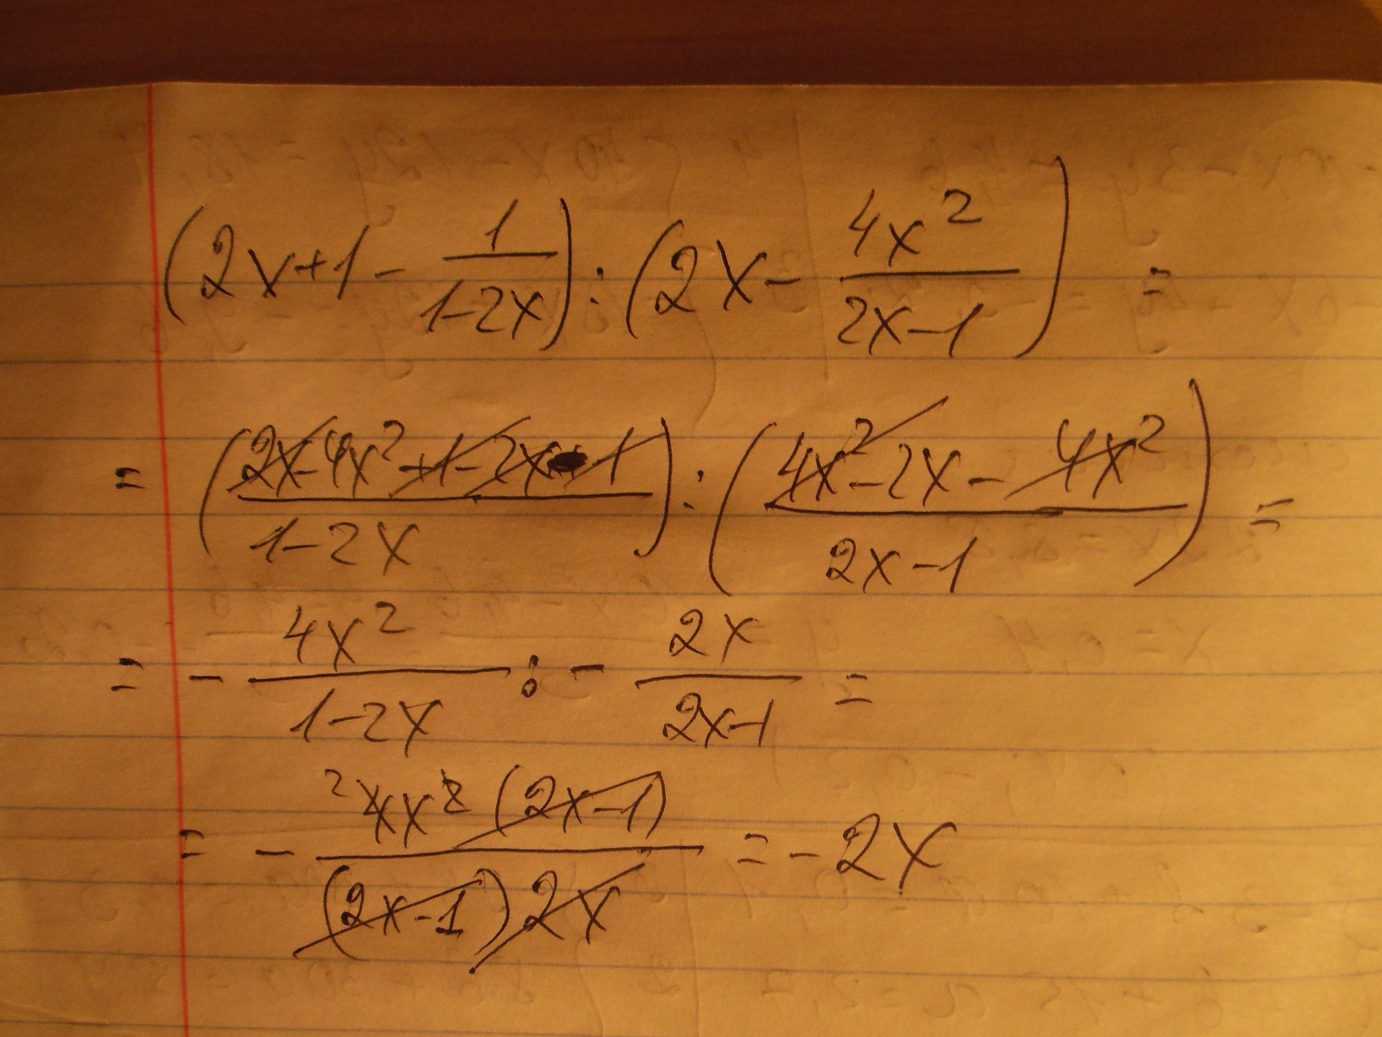 (2x+1-\frac{1}{1-2x}):(2x-\frac{4x^2}{2x-1})=
=(\frac{2x-4x^2+1-2x-1}{1-2x}):(\frac{4x^2-2x-4x^2}{2x-1})=
=-\frac{4x^2}{1-2x}:-\frac{2x}{2x-1}=
=-\frac{^24x^2(2x-1)}{(2x-1)2x}=-2x